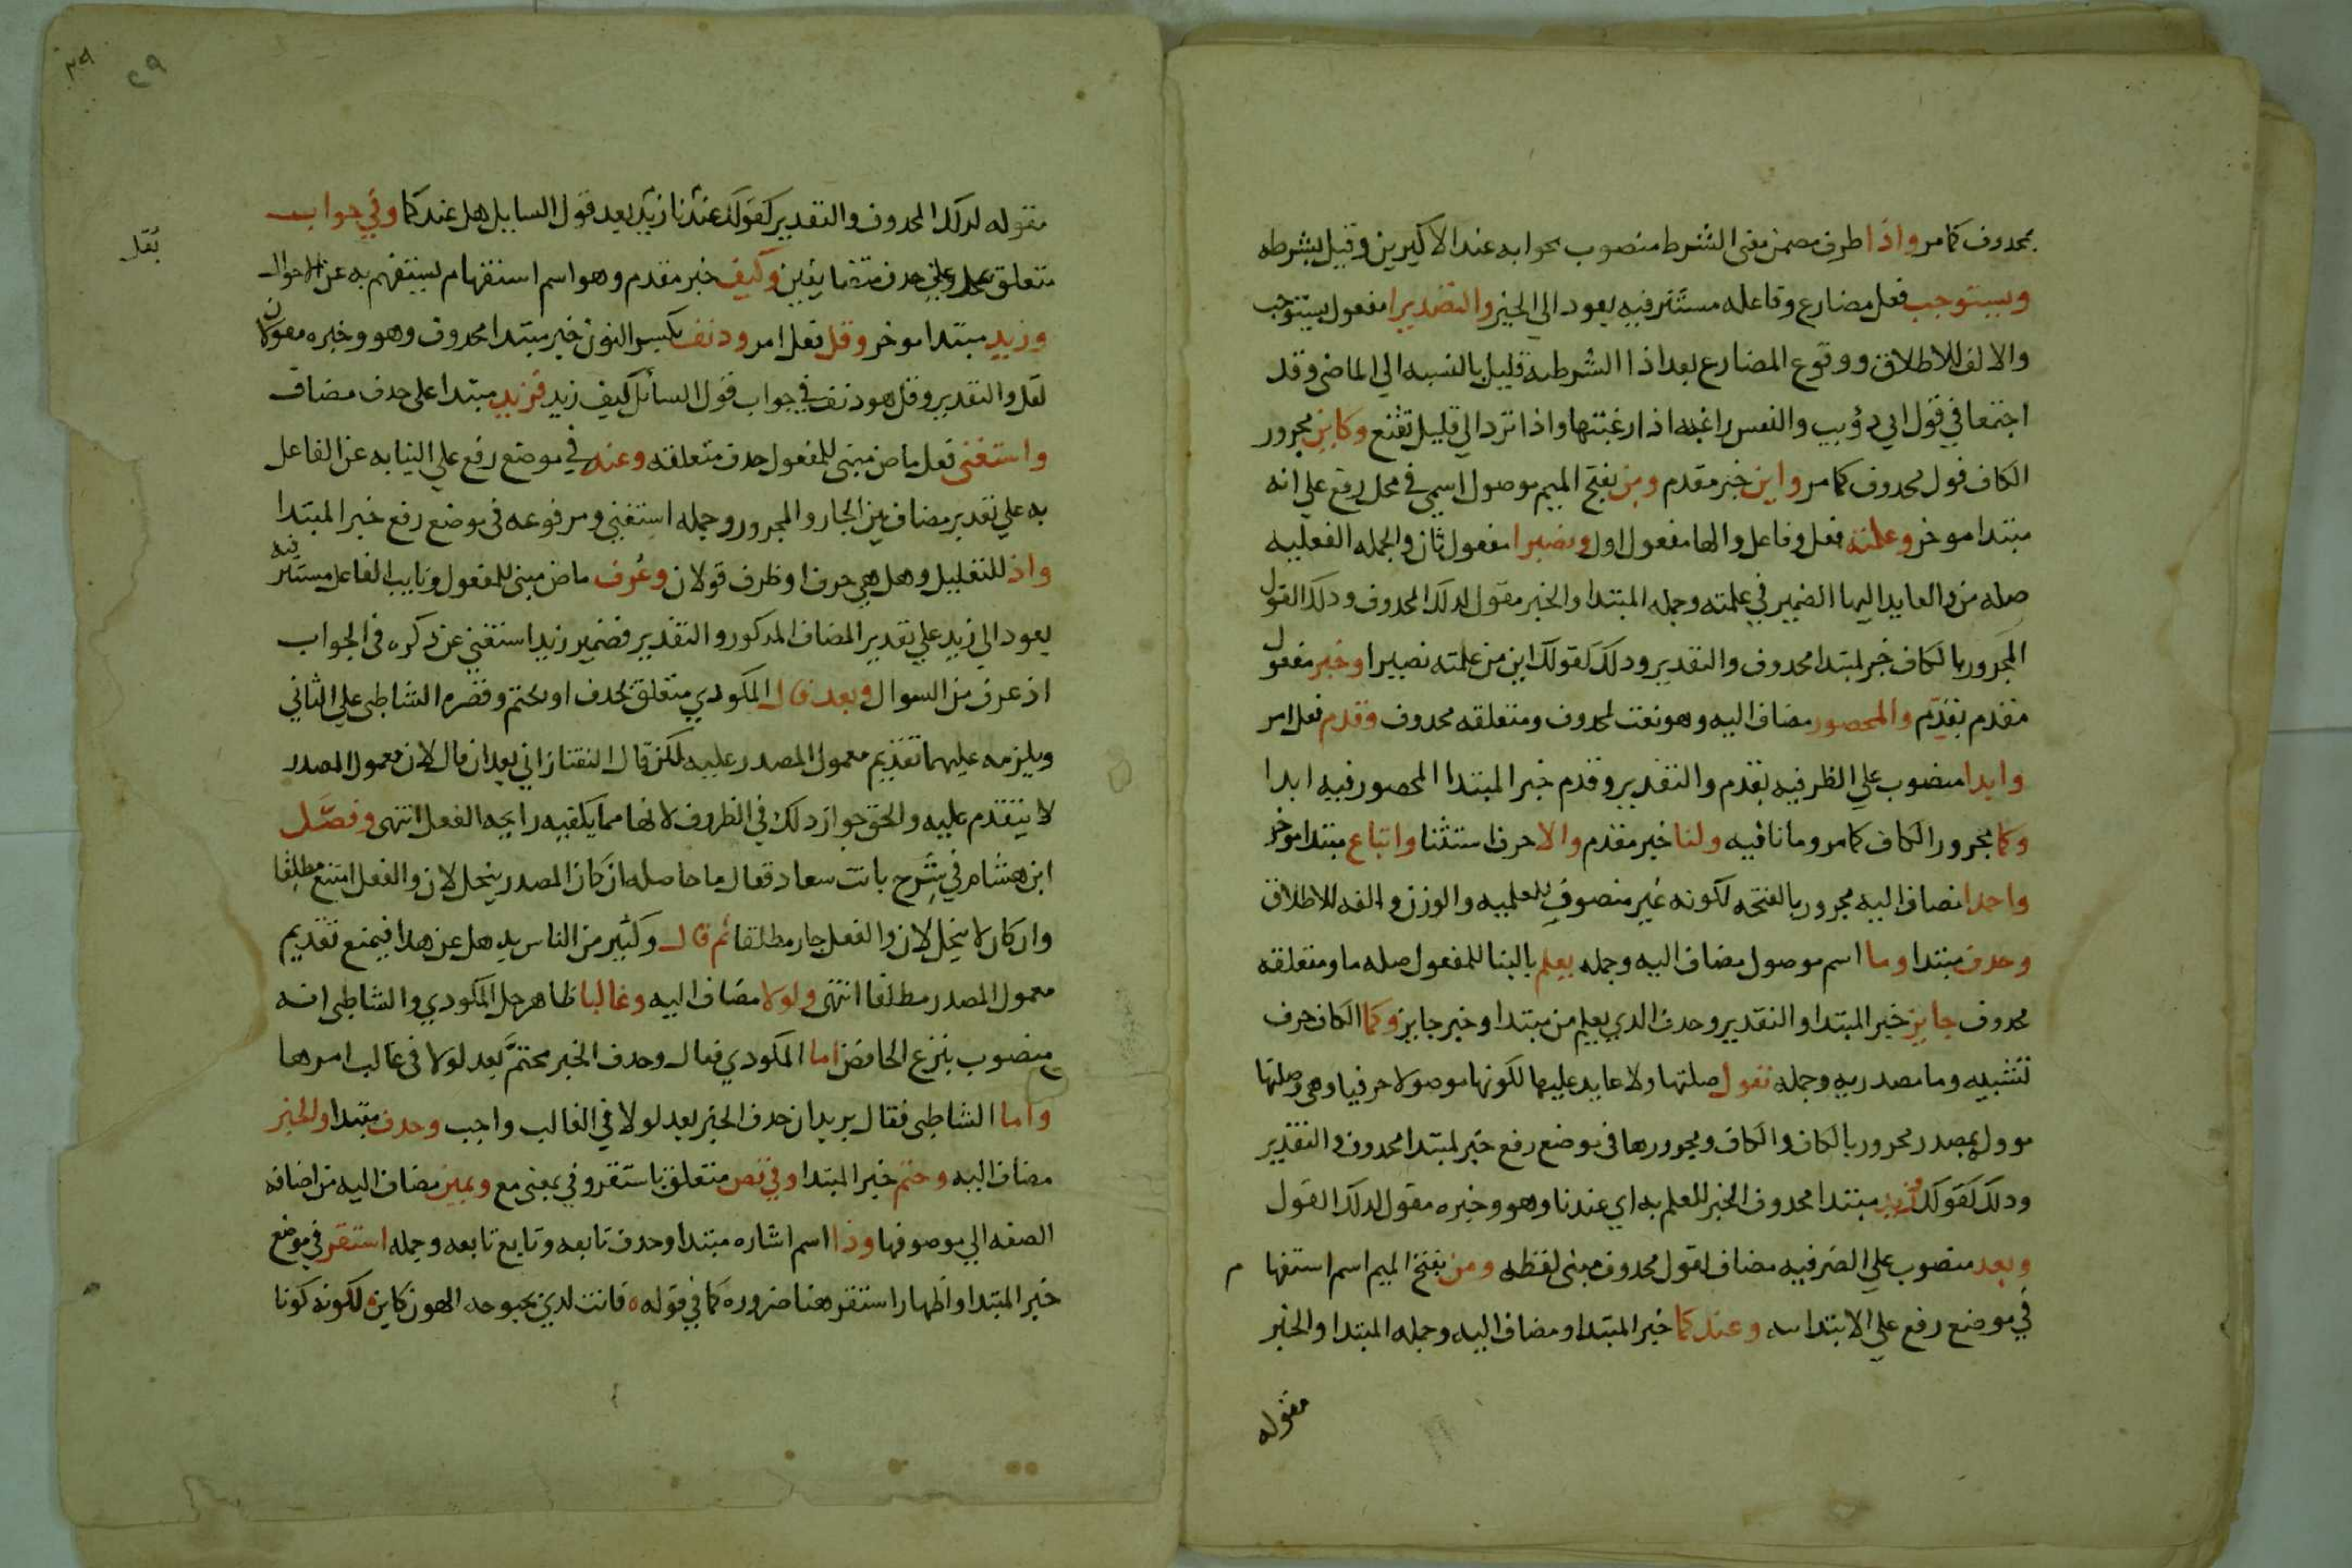 محدوف كما مر واذا ظرف مضمن معنى الشرط منصوب بجوابه عند الاكثرين وقيل بشرطه
ويستوجب فعل مضارع وفاعله مستتر فيه يعود الي الخبر والتصديرا مفعول يستوجب
والالف للاطلاق ووقوع المضارع بعد اذا الشرطيه قليل بالنسبه الي الماضي وقد
اجتمعا في قول ابي ذؤيب والنفس راغبه اذا رغبتها واذا ترد الي قليل تقنع وكاين مجرور
الكاف قول محدوف كما مر واين خبر مقدم ومن بفتح الميم موصول اسمي في محل رفع علي انه
مبتدا موخر وعلمته فعل وفاعل والها مفعول اول ونصيرا مفعول ثان والجمله الفعليه
صله من والعايد اليها الضمير في علمته وجمله المبتدا والخبر مقول لدلك المحدوف ودلك القول
المجرور بالكاف خبر لمبتدا محدوف والتقدير ودلك كقولك اين من علمته نصيرا وخبر مفعول
مقدم بقدم والمحصور مضاف اليه وهو نعت لمحدوف ومتعلقه محدوف وقدم فعل امر
وابدا منصوب علي الظرفيه بقدم والتقدير وقدم خبر المبتدا المحصور فيه ابدا
وكما مجرور الكاف كما مر وما نافيه ولنا خبر مقدم والا حرف استثنا واتباع مبتدا موخر
واحمدا مضاف اليه مجرور بالفتحه لكونه غير منصرف للعلميه والوزن والفه للاطلاق
وحدف مبتدا وما اسم موصول مضاف اليه وجمله يعلم بالبنا للمفعول صله ما ومتعلقه
محدوف جايز خبر المبتدا والتقدير وحدف الدي يعلم من مبتدا وخبر جايز وكما الكاف حرف
تشبيه وما مصدريه وجمله تقول صلتها ولا عايد عليها لكونها موصولا حرفيا وهي وصلتها
موول بمصدر مجرور بالكاف والكاف ومجرورها في موضع رفع خبر لمبتدا محدوف والتقدير
ودلك كقولك زيد مبتدا محدوف الخبر للعلم به اي عندنا وهو وخبره مقول لدلك القول
وبعد منصوب علي الظرفيه مضاف لقول محدوف مبنى لفظه ومن بفتح الميم اسم استفهام
في موضع رفع علي الابتدائيه وعندكما خبر المبتدا ومضاف اليه وجمله المبتدا والخبر
مقوله
٢٩
٢٩
مقوله لدلك المحدوف والتقدير كقولك عندنا زيد بعد قول السايل هل عندكما وفي جواب
متعلق بقل وعلي حدف متضايفين وكيف خبر مقدم وهو اسم استفهام يستفهم به عن الاحوال
بقل
وزيد مبتدا موخر وقل فعل امر ودنف بكسر النون خبر مبتدا محدوف وهو وخبره مقولان
لقل والتقدير وقل هو دنف في جواب قول السائل كيف زيد فزيد مبتدا على حدف مضاف
واستغنى فعل ماض مبنى للمفعول حدف متعلقه وعنه في موضع رفع علي النيابه عن الفاعل
به علي تقدير مضاف بين الجار والمجرور وجمله استغني ومرفوعه في موضع رفع خبر المبتدا
واذ للتعليل وهل هي حرف او ظرف قولان وعرف ماض مبنى للمفعول ونايب الفاعل مستتر فيه
يعود الي زيد علي تقدير المضاف المدكور والتقدير فضمير زيد استغني عن دكره في الجواب
اذ عرف من السوال وبعد قال المكودي متعلق بحدف او بحتم وقصره الشاطبي علي الثاني
ويلزمه عليهما تقديم معمول المصدر عليه لكن قال التفتازاني بعد ان قال لان معمول المصدر
لا يتقدم عليه والحق جواز دلك في الظروف لانها مما يكفيه رايحه الفعل انتهى وفصل
ابن هشام في شرح بانت سعاد فقال ما حاصله ان كان المصدر ينحل لان والفعل امتنع مطلقا
وان كان لا ينحل لان والفعل جاز مطلقا ثم قال وكثير من الناس يدهل عن هدا فيمنع تقديم
معمول المصدر مطلقا انتهى ولولا مضاف اليه وغالبا ظاهر حل المكودي والشاطبي انه
منصوب بنزع الخافض اما المكودي فقال وحدف الخبر محتم بعد لولا في غالب امرها
واما الشاطبي فقال يريد ان حدف الخبر بعد لولا في الغالب واجب وحدف مبتدا والخبر
مضاف اليه وحتم خبر المبتدا وفي نص متعلق باستقر وفي بمعنى مع ويمين مضاف اليه من اضافه
الصفه الي موصوفها وذا اسم اشاره مبتدا وحدف تابعه وتابع تابعه وجمله استقر في موضع
خبر المبتدا واظهار استقر هنا ضروره كما في قوله فانت لدي بحبوحه الهون كاين لكونه كونا